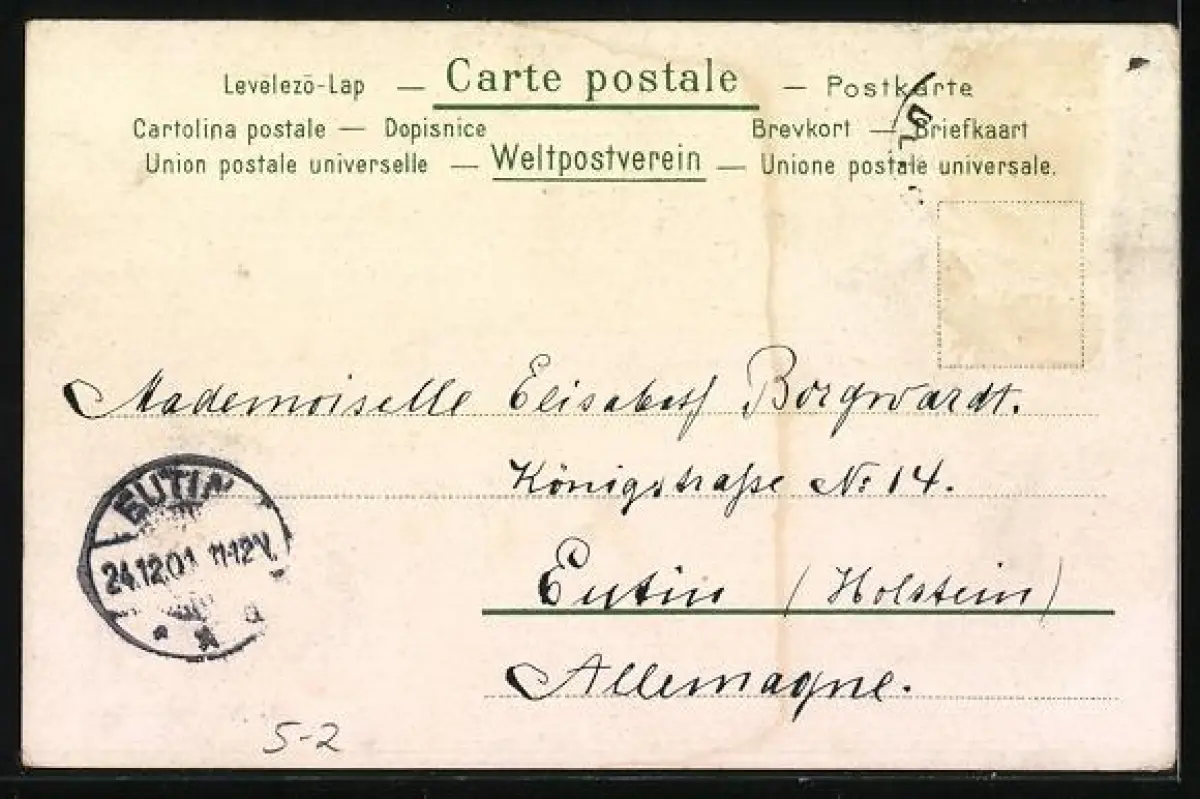 Levelező-Lap — Carte postale — Postkarte
Cartolina postale — Dopisnice Brevkort — Briefkaart
Union postale universelle — Weltpostverein — Unione postale universale.
Mademoiselle Elisabeth Borgwardt.
Königstraße No 14.
Eutin (Holstein)
Allemagne.
EUTIN
24.12.01 11-12V.
* * a
5-2